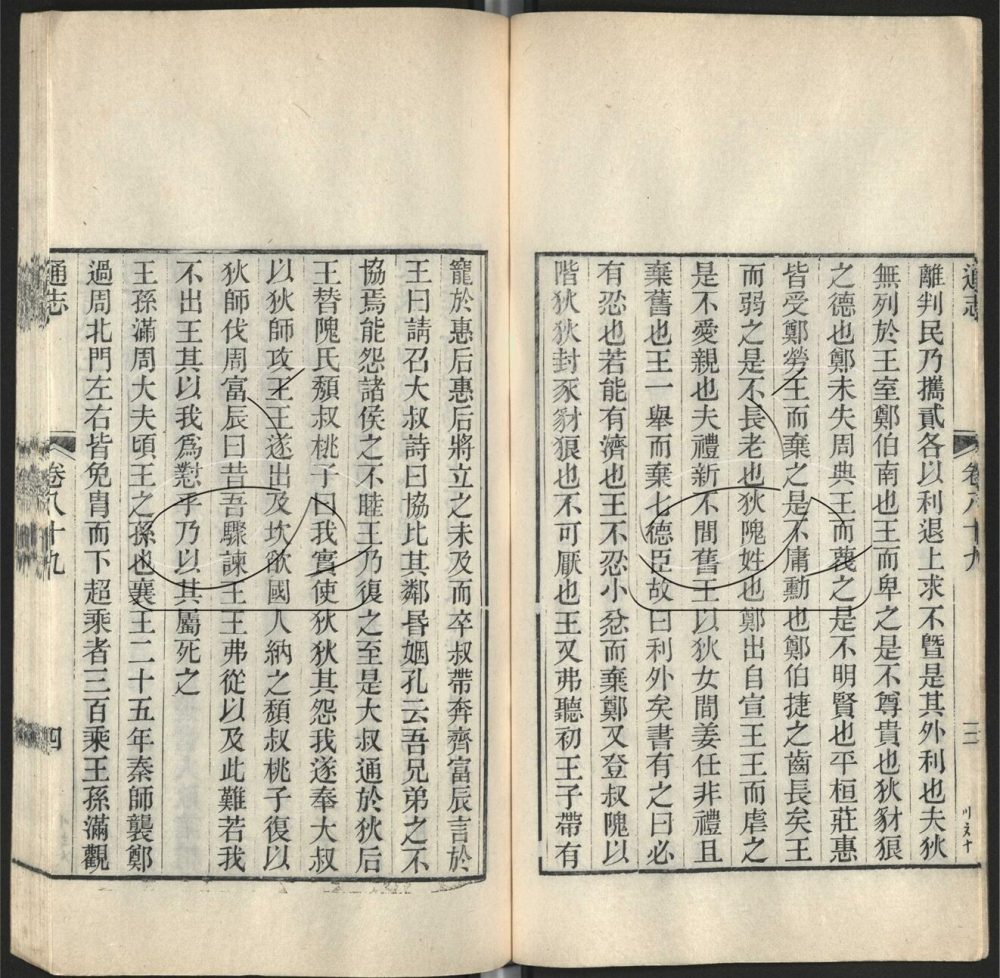 通志
卷八十九
三
離判民乃攜貳各以利退上求不曁是其外利也夫狄
無列於王室鄭伯南也王而卑之是不尊貴也狄豺狠
之德也鄭未失周典王而蔑之是不明賢也平桓莊惠
皆受鄭勞王而棄之是不庸勳也鄭伯捷之齒長矣王
而弱之是不長老也狄隗姓也鄭出自宣王王而虐之
是不愛親也夫禮新不間舊王以狄女間姜任非禮且
棄舊也王一舉而棄七德臣故曰利外矣書有之曰必
有忍也若能有濟也王不忍小忿而棄鄭又登叔隗以
階狄狄封豕豺狼也不可厭也王又弗聽初王子帶有
寵於惠后惠后將立之未及而卒叔帶奔齊富辰言於
王曰請召大叔詩曰協比其鄰昏姻孔云吾兄弟之不
協焉能怨諸侯之不睦王乃復之至是大叔通於狄后
王替隗氏頹叔桃子曰我實使狄狄其怨我遂奉大叔
以狄師攻王王遂出及坎欿國人納之頹叔桃子復以
狄師伐周富辰曰昔吾驟諫王王弗從以及此難若我
不出王其以我爲懟乎乃以其屬死之
王孫滿周大夫頃王之孫也襄王二十五年秦師襲鄭
過周北門左右皆免胄而下超乘者三百乘王孫滿觀
通志
卷八十九
四